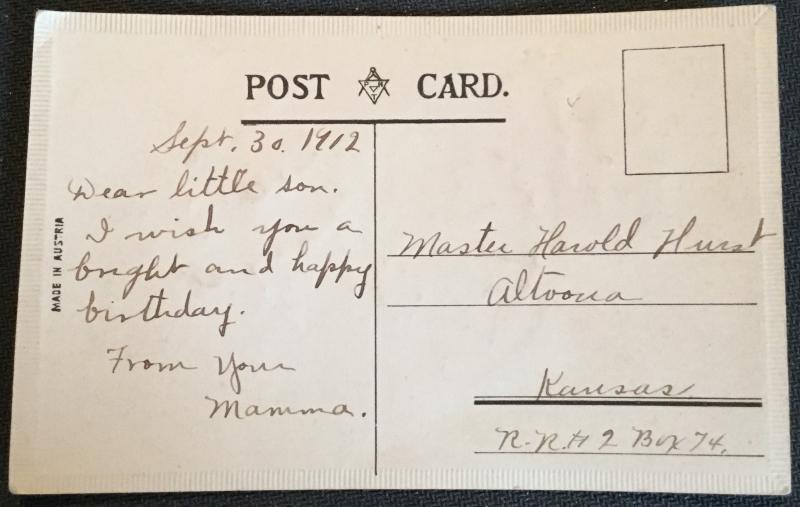 POST CARD.
Sept. 30. 1912
Dear little son.
I wish you a
bright and happy
birthday.
From Your
Mamma.
MADE IN AUSTRIA
Master Harold Hurst
Altoona
Kansas
R.R.# 2 Box 74.